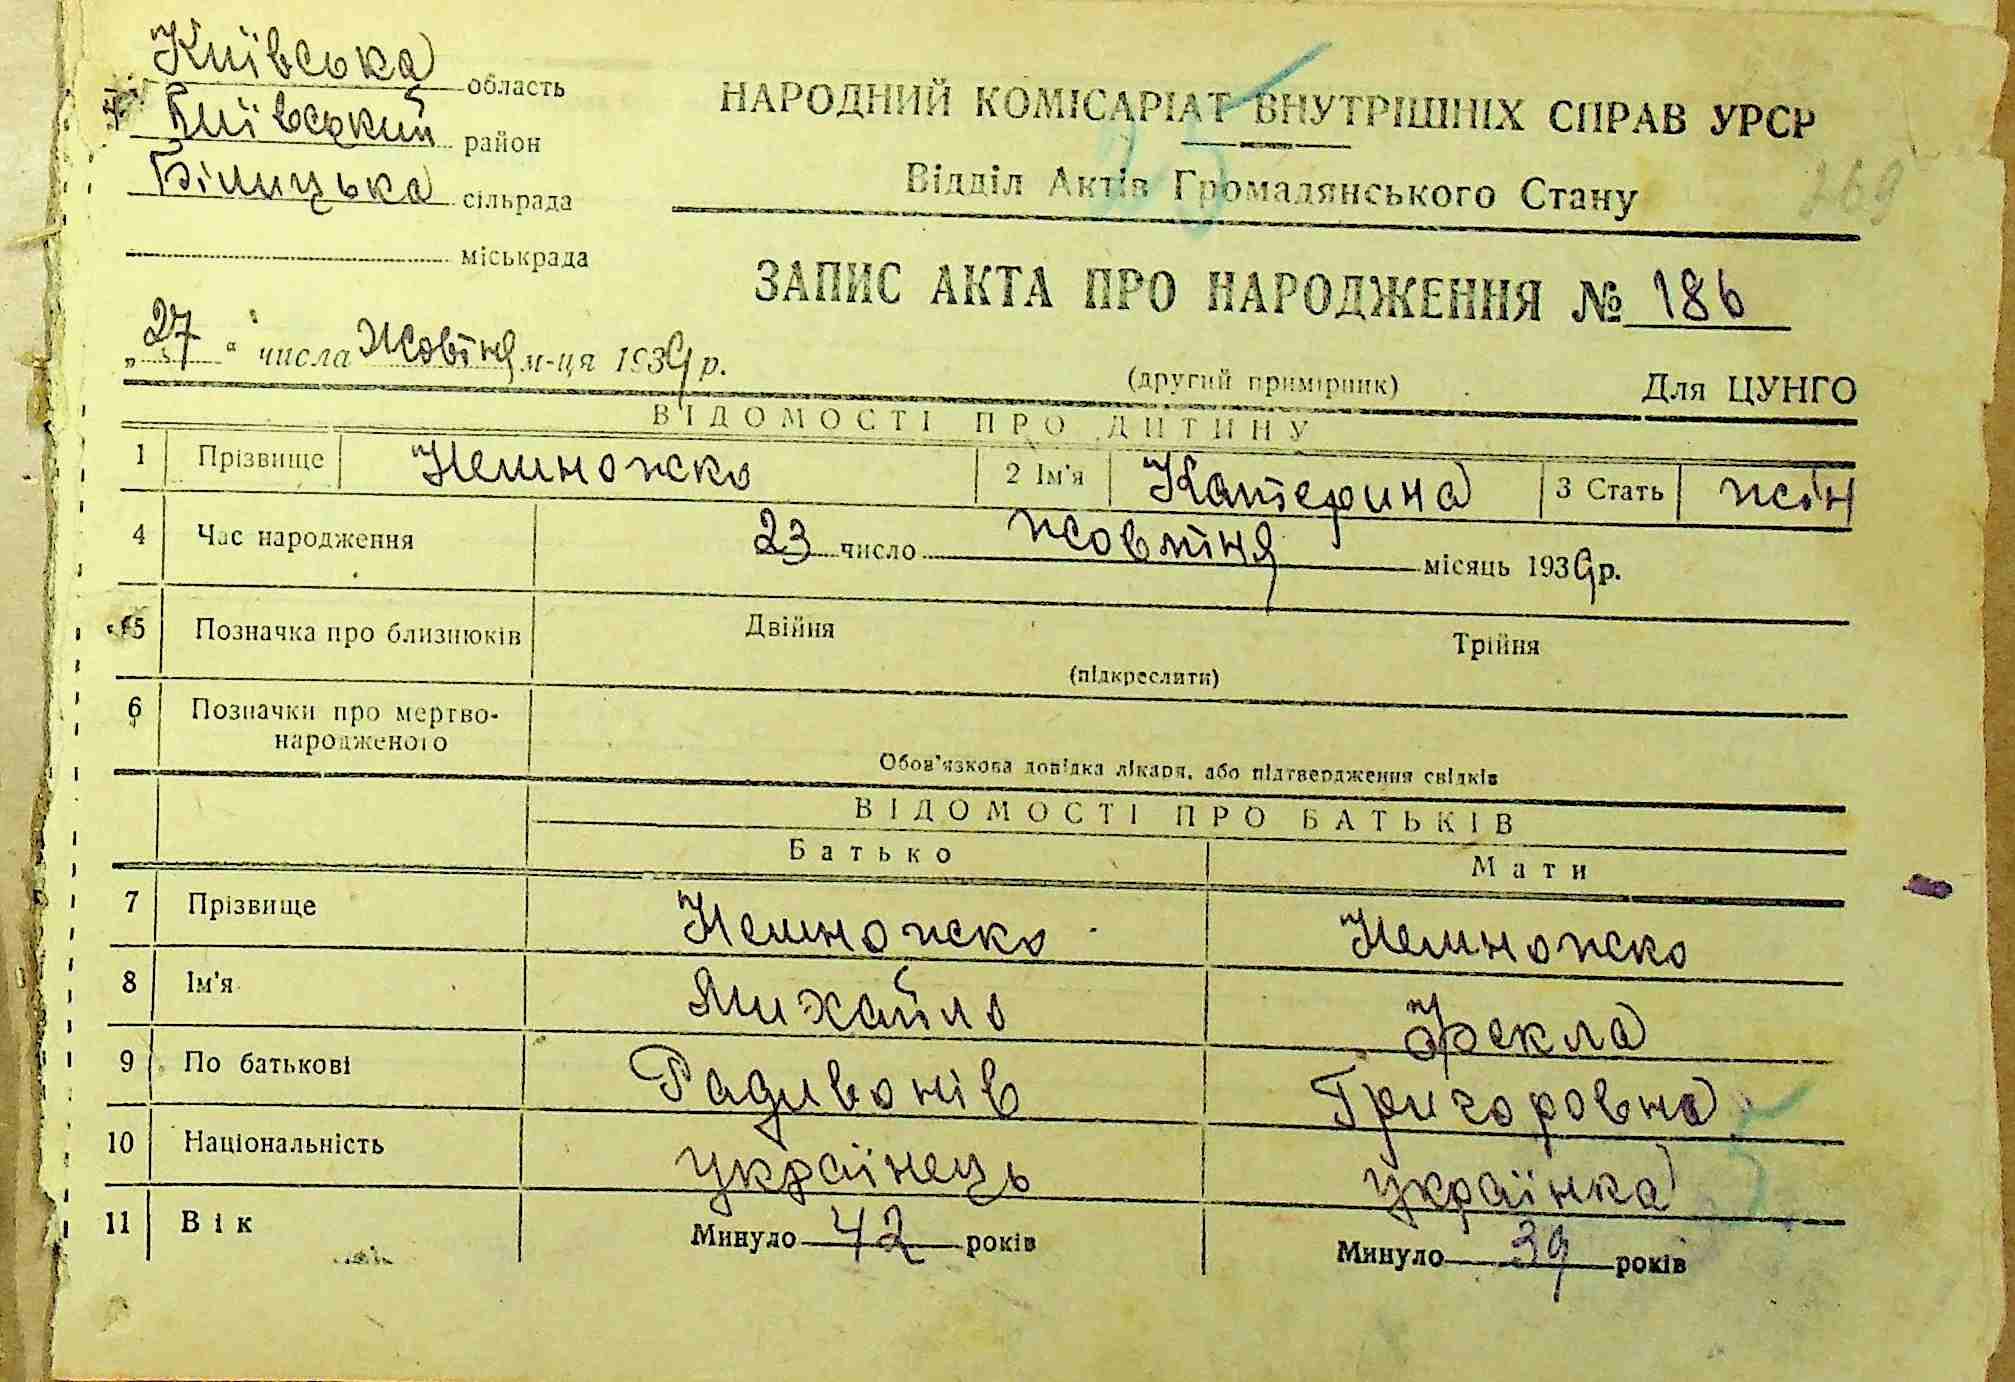 Київська область
Київський район
Білицька сільрада
міськрада
НАРОДНИЙ КОМІСАРІАТ ВНУТРІШНІХ СПРАВ УРСР
Відділ Актів Громадянського Стану
269
ЗАПИС АКТА ПРО НАРОДЖЕННЯ № 186
„27“ числа Жовтня м-ця 1939 р.
(другий примірник) Для ЦУНГО
ВІДОМОСТІ ПРО ДИТИНУ
1 Прізвище Немножко 2 Ім'я Катерина 3 Стать жін
4 Час народження 23 число жовтня місяць 1939 р.
5 Позначка про близнюків Двійня Трійня
(підкреслити)
6 Позначки про мертво-
народженого
Обов'язкова довідка лікаря, або підтвердження свідків
ВІДОМОСТІ ПРО БАТЬКІВ
Батько Мати
7 Прізвище Немножко Немножко
8 Ім'я Михайло Фекла
9 По батькові Радивонів Григоровна
10 Національність українець українка
11 Вік Минуло 42 років Минуло 39 років